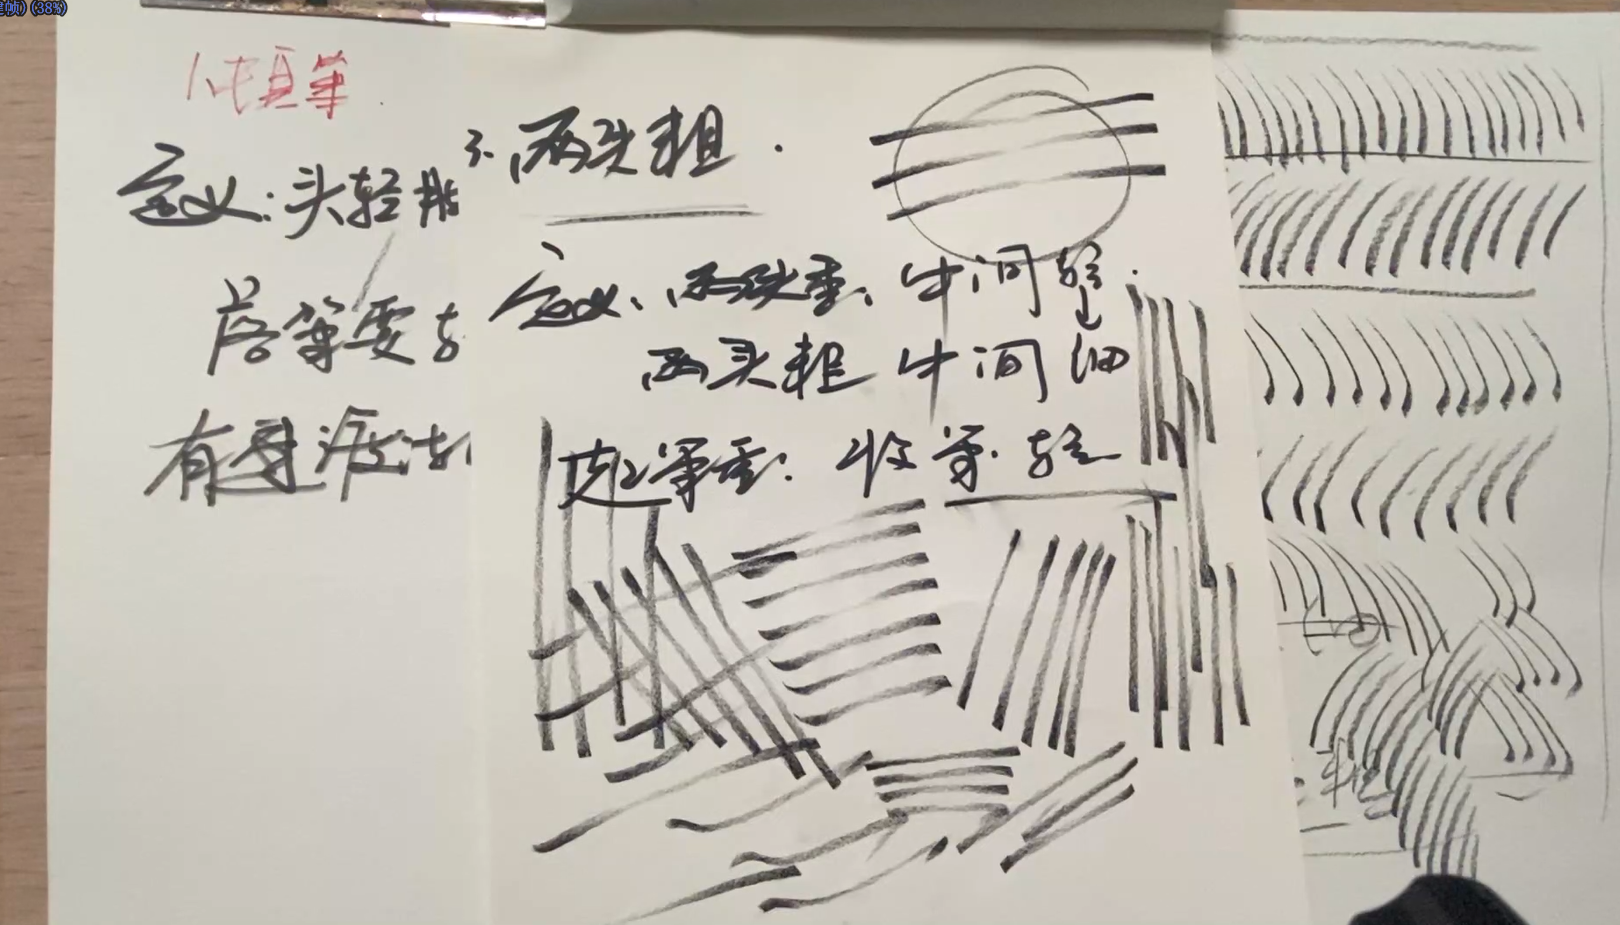 建帧) (38%)
定义:头轻
落笔要轻
有速度
3. 两头粗.
定义:两头重、中间轻.
两头粗 中间细
起笔重. 收笔轻